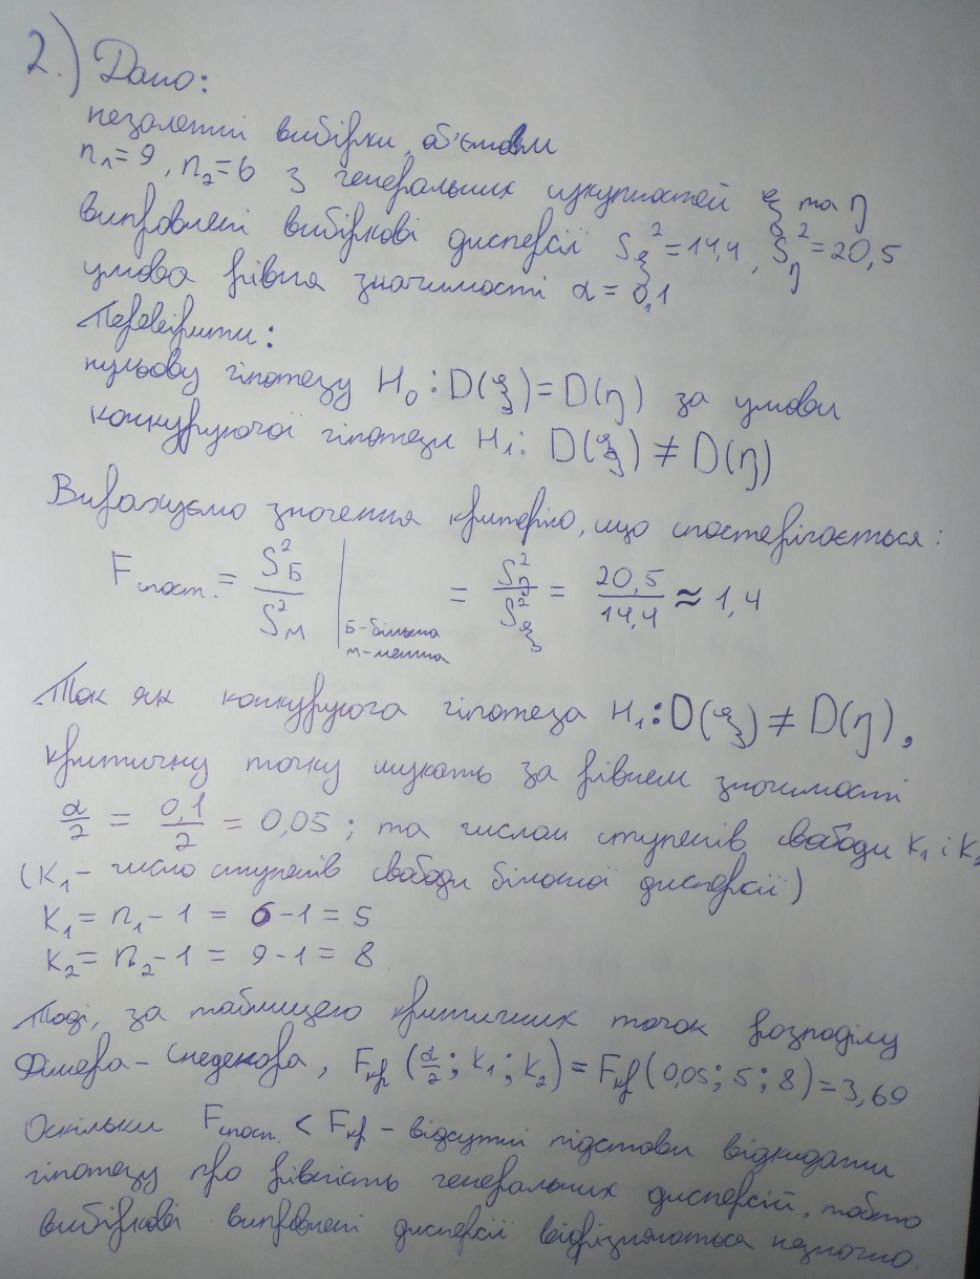 2.) Дано:
незалежні вибірки, об'ємами
n₁=9, n₂=6 з генеральних сукупностей ξ та η
виправлені вибіркові дисперсії S_ξ²=14,4, S_η²=20,5
умова рівня значимості α = 0,1
Перевірити:
нульову гіпотезу H₀: D(ξ) = D(η) за умови
конкуруючої гіпотези H₁: D(ξ) ≠ D(η)
Вирахуємо значення критерію, що спостерігається:
F спост. = S²_Б / S²_М | Б-більша м-менша = S²_η / S²_ξ = 20,5 / 14,4 ≈ 1,4
Так як конкуруюча гіпотеза H₁: D(ξ) ≠ D(η),
критичну точку шукають за рівнем значимості
α/2 = 0,1/2 = 0,05; та числом ступенів свободи K₁ і K₂
(K₁ - число ступенів свободи більшої дисперсії)
K₁ = n₁ - 1 = 6 - 1 = 5
K₂ = n₂ - 1 = 9 - 1 = 8
Тоді, за таблицею критичних точок розподілу
Фішера-Снедекора, Fкр (α/2; K₁; K₂) = Fкр (0,05; 5; 8) = 3,69
Оскільки Fспост. < Fкр - відсутні підстави відкидати
гіпотезу про рівність генеральних дисперсій, тобто
вибіркові виправлені дисперсії відрізняються незначно.